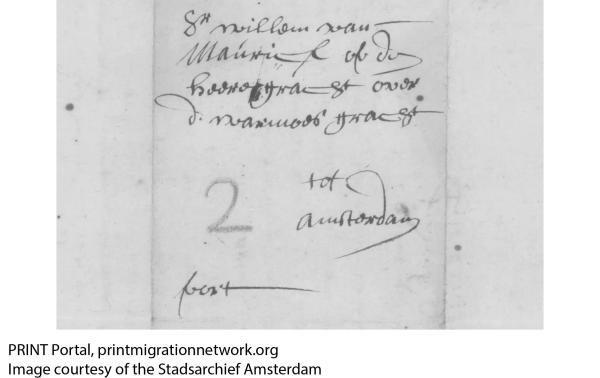 Sr willem van
Maurick op de
heeregracht over
d. warmoes gracht
tot
2
Amsterdam
port
PRINT Portal, printmigrationnetwork.org
Image courtesy of the Stadsarchief Amsterdam